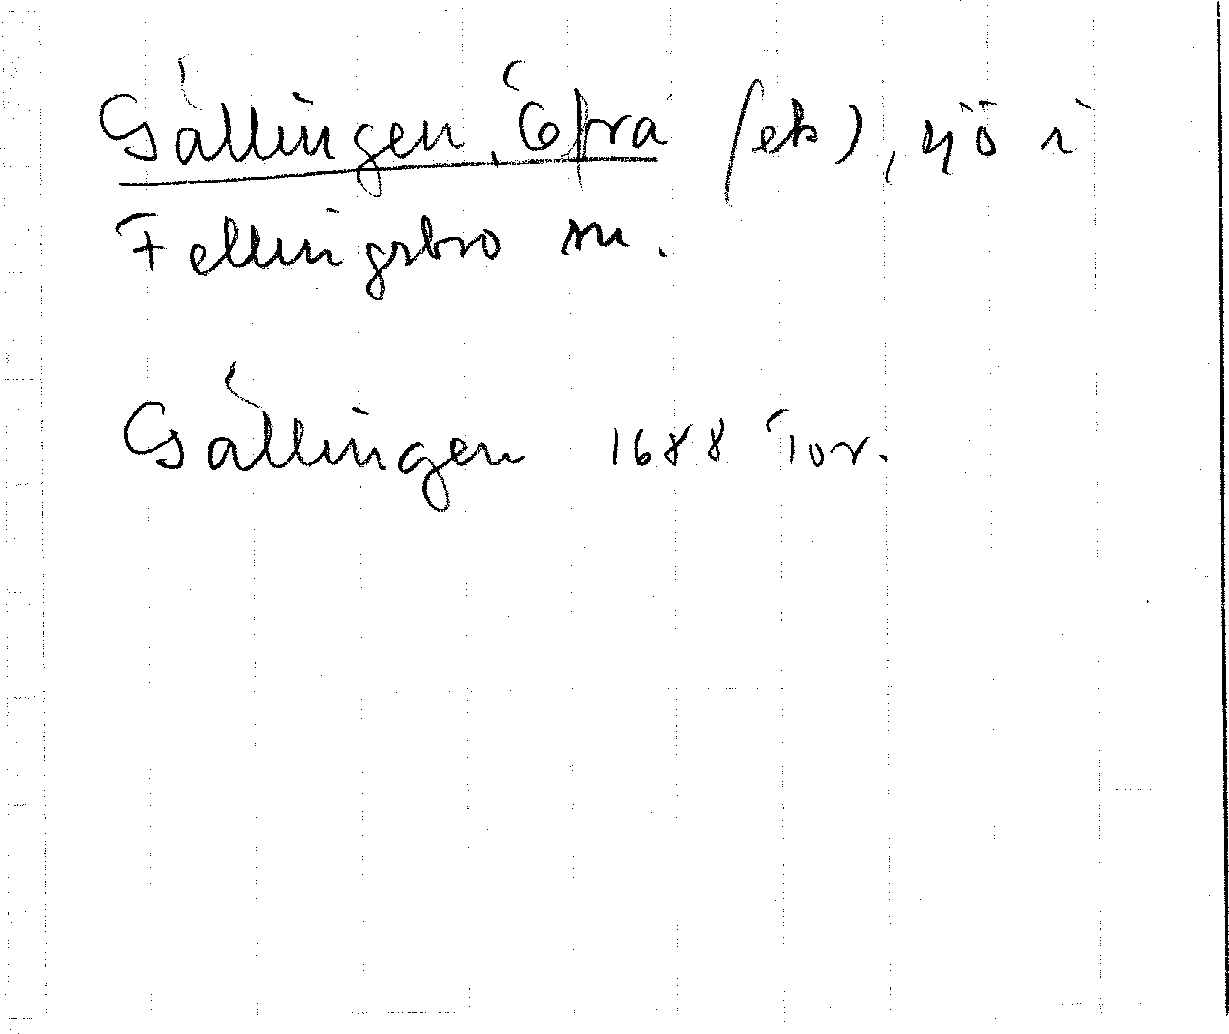 Gällingen, Öfra (ek), sjö i
Fellingsbro sn.
Gällingen 1688 Jor.